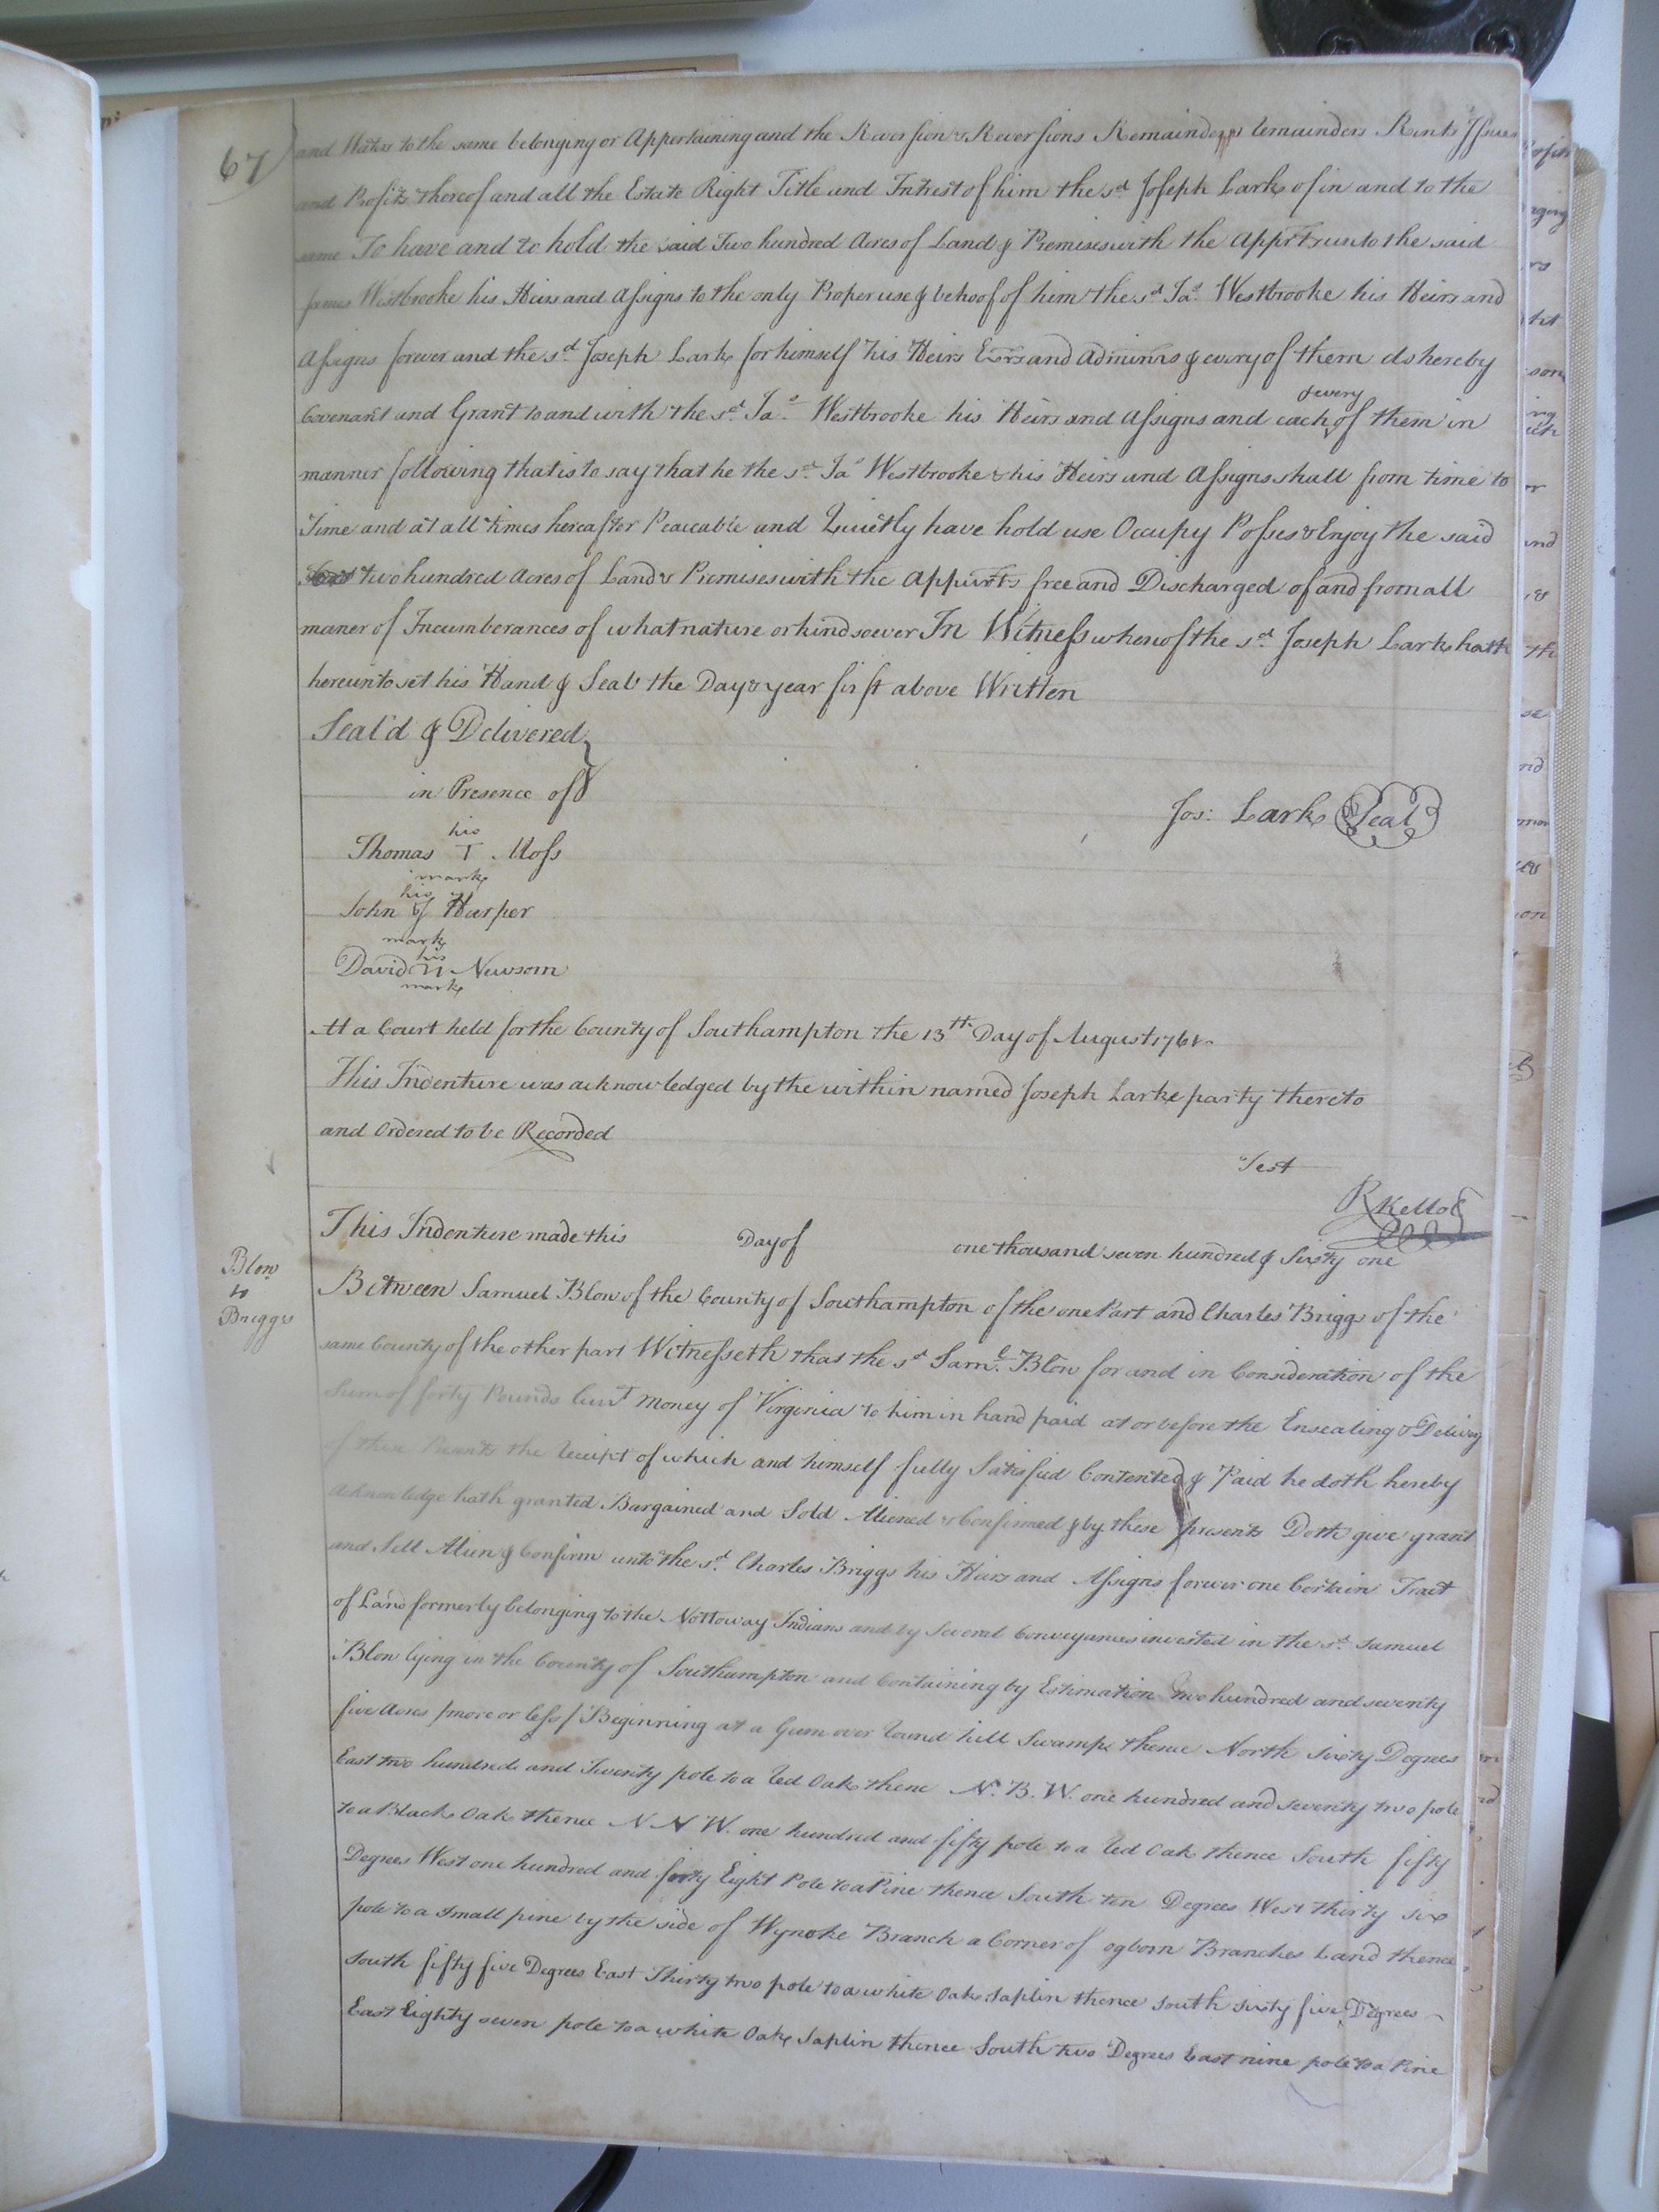 67
and Waters to the same belonging or Appertaining and the Reversion & Reversions Remainder remainders Rents Issues
and Profits thereof and all the Estate Right Title and Intrest of him the sd. Joseph Lark of in and to the
same To have and to hold the said Two hundred Acres of Land & Premises with the Appr̃ts unto the said
James Westbrooke his Heirs and Assigns to the only Proper use & behoof of him the sd. Jas. Westbrooke his Heirs and
Assigns forever and the sd. Joseph Lark for himself his Heirs Exrs and Adminrs & every of them do hereby
& every
Covenant and Grant to and with the sd. Jas. Westbrooke his Heirs and Assigns and each of them in
manner following that is to say that he the sd. Jas Westbrooke & his Heirs and Assigns shall from time to
Time and at all times hereafter Peaceable and Quietly have hold use Occupy Posses & Enjoy the said
two hundred Acres of Land & Premises with the Appurts free and Discharged of and from all
maner of Incumberances of what nature or kind soever In Witness whereof the sd. Joseph Lark hath
hereunto set his Hand & Seal the Day & year first above Written
Seal'd & Delivered
in Presence of
Jos: Lark Seal
his
Thomas T Moss
mark
his
John Harper
mark
his
David N Newsom
mark
At a Court held for the County of Southampton the 13th Day of August 1761.
This Indenture was acknowledged by the within named Joseph Lark party thereto
and Ordered to be Recorded
Test
R Kello
This Indenture made this Day of one thousand seven hundred & Sixty one
Blow
to
Briggs
Between Samuel Blow of the County of Southampton of the one Part and Charles Briggs of the
same County of the other part Witnesseth that the sd Saml. Blow for and in Consideration of the
Sum of forty Pounds Curt Money of Virginia to him in hand paid at or before the Ensealing & Delivey
of these Presents the receipt of which and himself fully Satisfied Contented & Paid he doth hereby
Acknowledge hath granted Bargained and Sold Aliened & Confirmed & by these presents Doth give grant
and Sell Alien & Confirm unto the sd. Charles Briggs his Heirs and Assigns forever one Certain Tract
of Land formerly belonging to the Nottoway Indians and by Several Conveyances invested in the sd. Samuel
Blow lying in the County of Southampton and Containing by Estimation Two hundred and seventy
five Acres /more or less/ Beginning at a Gum over round hill Swamp thence North sixty Degrees
East two hundred and Twenty pole to a red Oak thenc N. B. W. one hundred and seventy two pole
to a Black Oak thence N N W. one hundred and fifty pole to a red Oak thence South fifty
Degrees West one hundred and forty Eight Pole to a Pine thence South ten Degrees West thirty six
pole to a small pine by the side of Wynoke Branch a Corner of ogborn Branches Land thence
South fifty five Degrees East Thirty two pole to a white Oak Saplin thence South sixty five Degrees
East Eighty seven pole to a white Oak Saplin thence South two Degrees East nine pole to a Pine